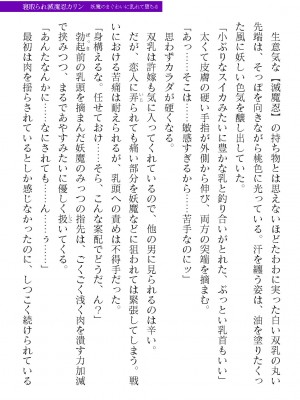 寝取られ滅魔忍カリン 妖魔のまぐわいに乱れて堕ちる
生意気な【滅魔忍】の持ち物とは思えないほどたわわに実った白い双乳の丸い
先端は、そっぽを向きながら桃色に光っている。汗を纏う姿は、油を塗りたくっ
た風に妖しい色気を醸し出していた。
「小ぶりなスイカみたいに豊かな乳と釣り合いがとれた、ぶっとい乳首もいい」
太くて皮膚の硬い手指が外側から伸び、両方の突端を摘まむ。
「あっ……そこは……敏感すぎるから……苦手なのにッ」
思わずカラダが硬くなる。
双乳は許嫁も気に入ってくれているので、他の男に見られるのは辛い。
だが、恋人に弄られても痛い部分を妖魔などに狙われては緊張してしまう。戦
いにおける苦痛は耐えられるが、乳頭への責めは不得手だった。
「身構えるな。任せておけ……そら、こんな案配でどうだ、ん？」
勃起前の乳頭を摘まんだ妖魔のふたつの指先は、ごくごく浅く肉を潰す力加減
で挟みつつ、まるであやすみたいに優しく扱いてくる。
「あんたなんかに……なにされても……ん……ぅ……」
最初は肉を揺らされているとしか感じなかったのに、しつこく続けられている